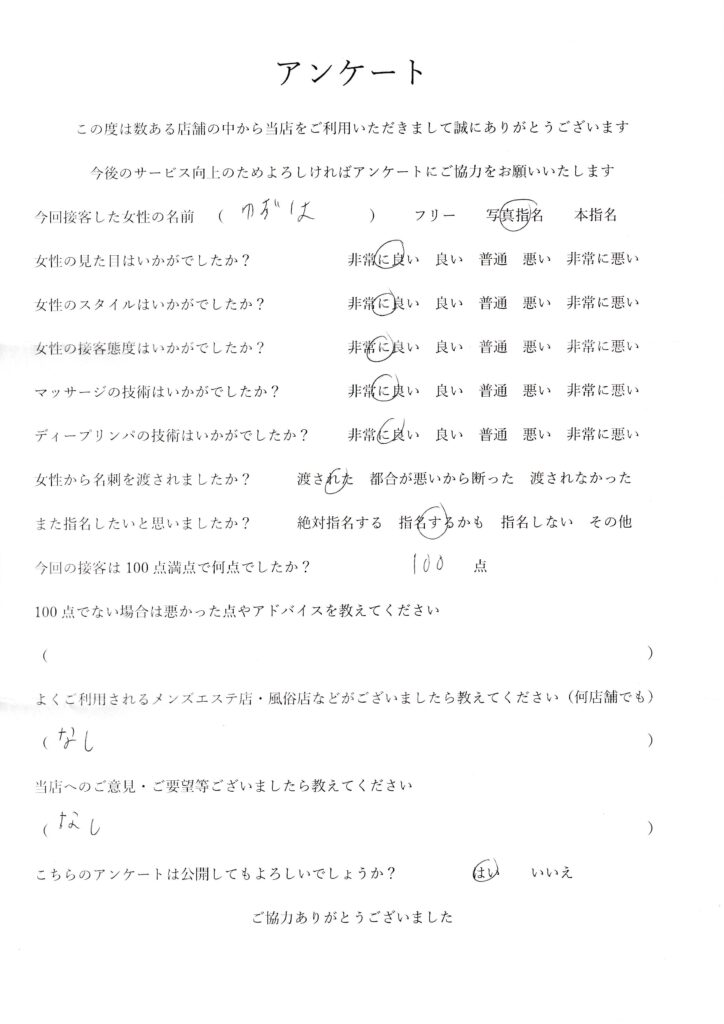 アンケート
この度は数ある店舗の中から当店をご利用いただきまして誠にありがとうございます
今後のサービス向上のためよろしければアンケートにご協力をお願いいたします
今回接客した女性の名前 ( ) フリー 写真指名 本指名
女性の見た目はいかがでしたか? 非常に良い 良い 普通 悪い 非常に悪い
女性のスタイルはいかがでしたか? 非常に良い 良い 普通 悪い 非常に悪い
女性の接客態度はいかがでしたか? 非常に良い 良い 普通 悪い 非常に悪い
マッサージの技術はいかがでしたか? 非常に良い 良い 普通 悪い 非常に悪い
ディープリンパの技術はいかがでしたか? 非常に良い 良い 普通 悪い 非常に悪い
女性から名刺を渡されましたか? 渡された 都合が悪いから断った 渡されなかった
また指名したいと思いましたか? 絶対指名する 指名するかも 指名しない その他
今回の接客は 100 点満点で何点でしたか? 100 点
100 点でない場合は悪かった点やアドバイスを教えてください
( )
よくご利用されるメンズエステ店・風俗店などがございましたら教えてください (何店舗でも)
( なし )
当店へのご意見・ご要望等ございましたら教えてください
( なし )
こちらのアンケートは公開してもよろしいでしょうか? はい いいえ
ご協力ありがとうございました